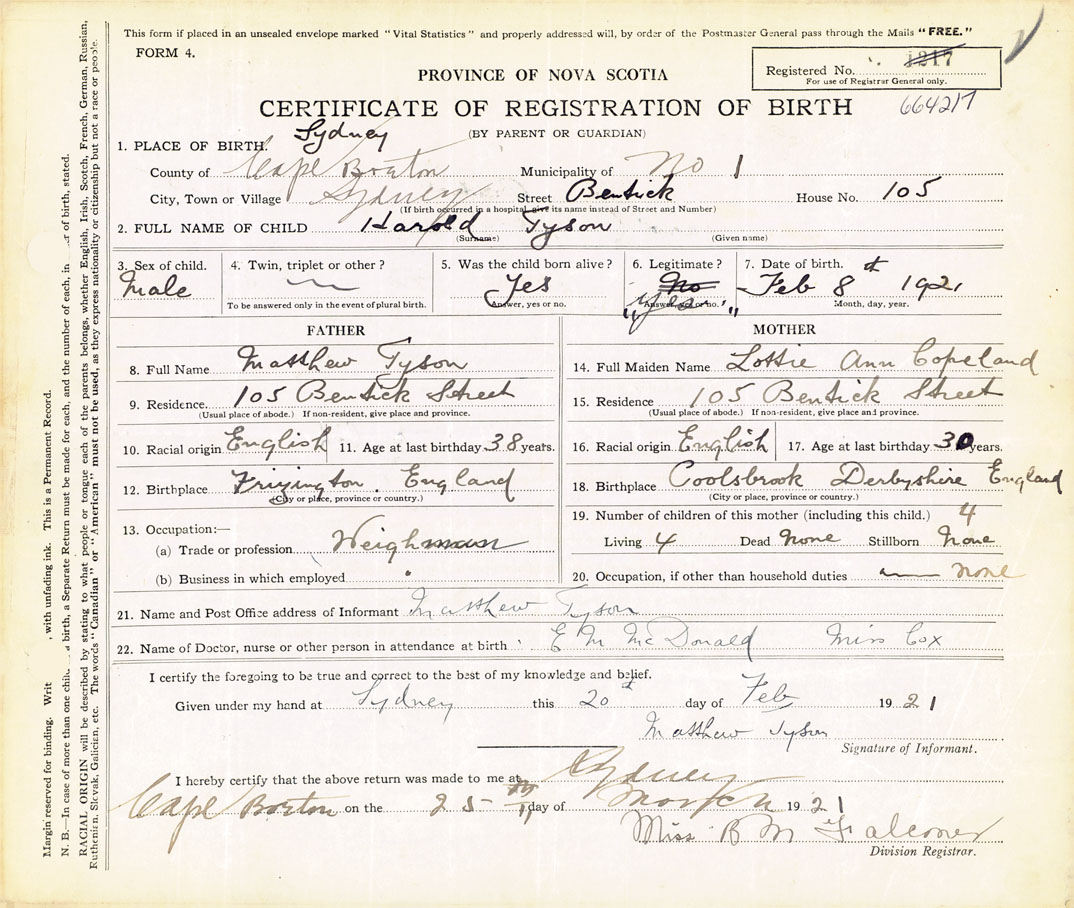 This form if placed in an unsealed envelope marked "Vital Statistics" and properly addressed will, by order of the Postmaster General pass through the Mails "FREE."
FORM 4.
PROVINCE OF NOVA SCOTIA
Registered No. 1217
For use of Registrar General only.
CERTIFICATE OF REGISTRATION OF BIRTH
664217
(BY PARENT OR GUARDIAN)
1. PLACE OF BIRTH. Sydney
County of Cape Breton Municipality of No 1
City, Town or Village Sydney Street Bentick House No. 105
(If birth occurred in a hospital, give its name instead of Street and Number)
2. FULL NAME OF CHILD Harold Tyson
(Surname) (Given name)
3. Sex of child. 4. Twin, triplet or other? 5. Was the child born alive? 6. Legitimate? 7. Date of birth.
Male Yes No Feb 8th 1921
To be answered only in the event of plural birth. Answer, yes or no. Answer, yes or no. Month, day, year.
"yes"
FATHER MOTHER
8. Full Name Matthew Tyson 14. Full Maiden Name Lottie Ann Copeland
9. Residence. 105 Bentick Street 15. Residence 105 Bentick Street
(Usual place of abode.) If non-resident, give place and province. (Usual place of abode.) If non-resident, give place and province.
10. Racial origin English 11. Age at last birthday 38 years. 16. Racial origin English 17. Age at last birthday 30 years.
12. Birthplace Frizington. England 18. Birthplace Coolsbrook Derbyshire England
(City or place, province or country.) (City or place, province or country.)
13. Occupation:— 19. Number of children of this mother (including this child.) 4
(a) Trade or profession Weighman Living 4 Dead None Stillborn None
(b) Business in which employed 20. Occupation, if other than household duties none
21. Name and Post Office address of Informant Matthew Tyson
22. Name of Doctor, nurse or other person in attendance at birth E M McDonald Miss Cox
I certify the foregoing to be true and correct to the best of my knowledge and belief.
Given under my hand at Sydney this 20 day of Feb 1921
Matthew Tyson
Signature of Informant.
I hereby certify that the above return was made to me at Sydney
Cape Breton on the 25 th day of 1921
Miss B M Falconer
Division Registrar.
Margin reserved for binding. Writ with unfading ink. This is a Permanent Record.
N. B.—In case of more than one chil a birth, a Separate Return must be made for each, and the number of each, in of birth, stated.
RACIAL ORIGIN will be described by stating to what people or tongue each of the parents belongs, whether English, Irish, Scotch, French, German, Russian,
Ruthenian, Slovak, Galician, etc. The words "Canadian" or "American" must not be used, as they express nationality or citizenship but not a race or people.